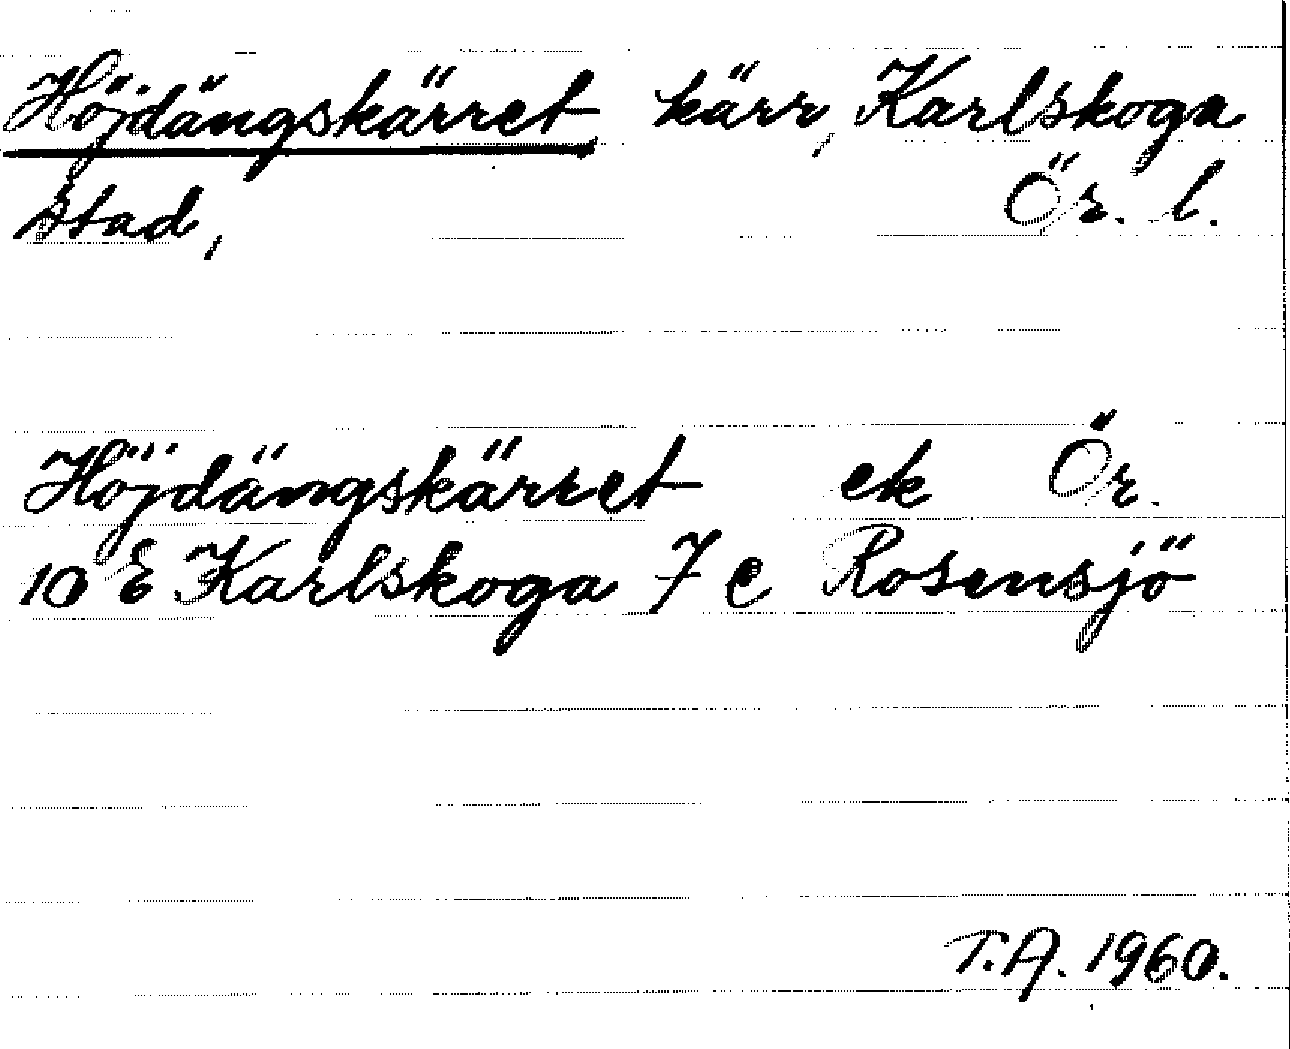 Höjdängskärret kärr, Karlskoga
stad, Ör. l.
Höjdängskärret ek Ör.
10 E Karlskoga 7 c Rosensjö
T.A. 1960.